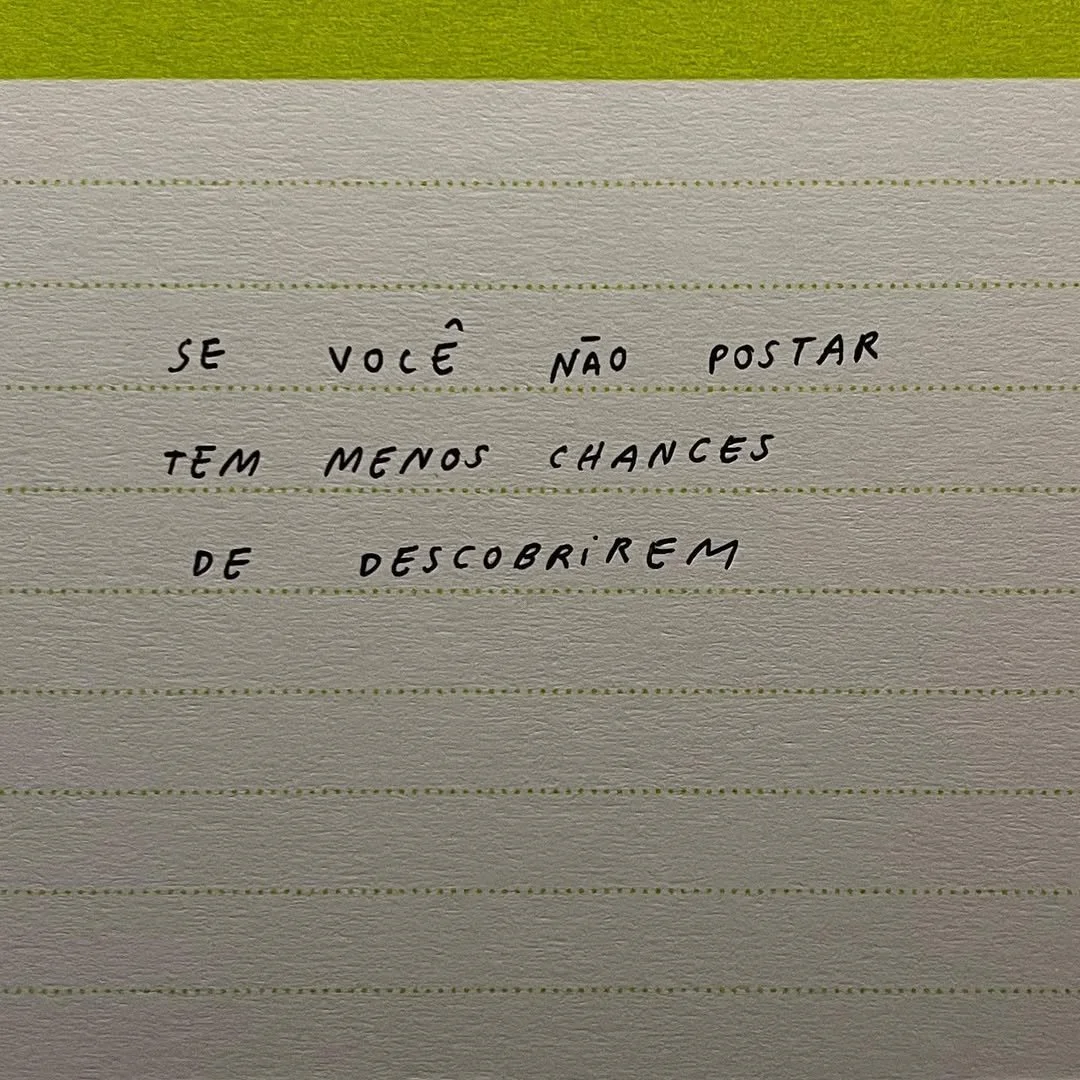 SE VOCÊ NÃO POSTAR
TEM MENOS CHANCES
DE DESCOBRIREM